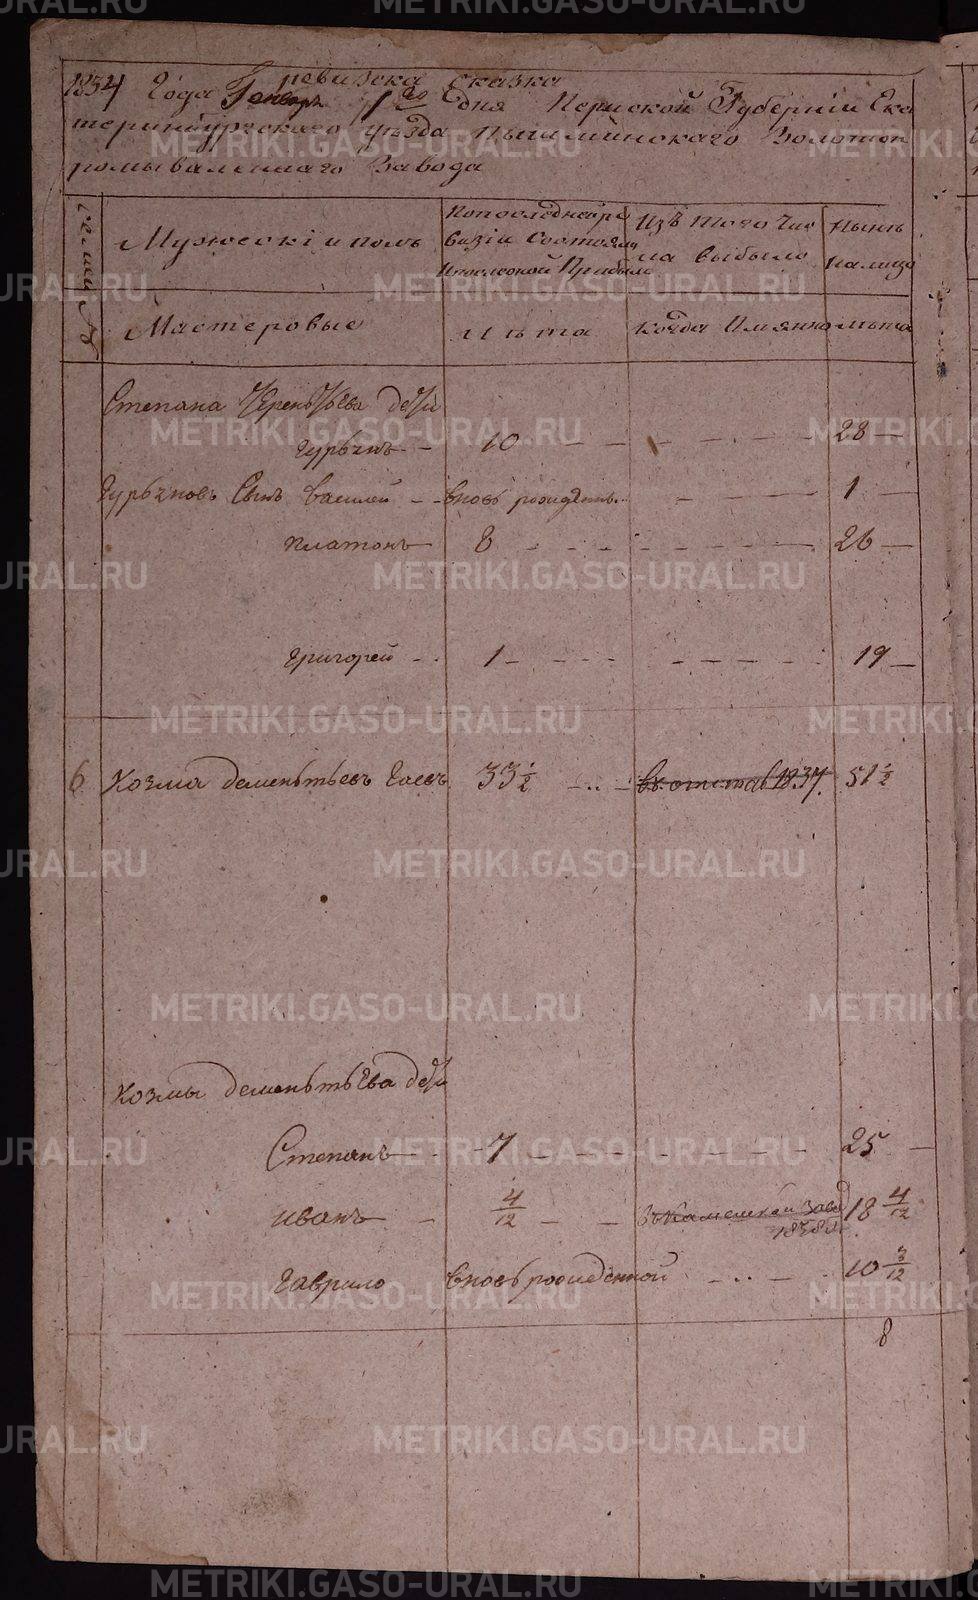 ревизска сказка
1834 Года Генваря 1го дня Пермской Губернии Ека
теринбургскаго уѣзда пышминскаго Золотоп
ромываленнаго Завода
семьи №
Мужескій полъ
Попоследней ре
визіи Состояло
Ипослеоной Прибыло
Изъ того Чис
ла выбыло
Нынѣ
налицо
Мастеровые
Лѣта
Когда Имянно
Лѣта
Степана Терентьева дети
Гурьянъ 10 28
Гурьяновъ Сынъ Василей вновь рожденъ 1
Платонъ 8 26
Григорей 1 19
6 Козма дементьевъ Гаевъ 33 1/2 въ отстав 1837. 51 1/2
Козмы дементьева дети
Степанъ 7 25
Иванъ 4/12 въ Каменской Заво 18 4/12
1838 г.
Гаврило вновьрожденной 10 3/12
8
METRIKI.GASO-URAL.RU